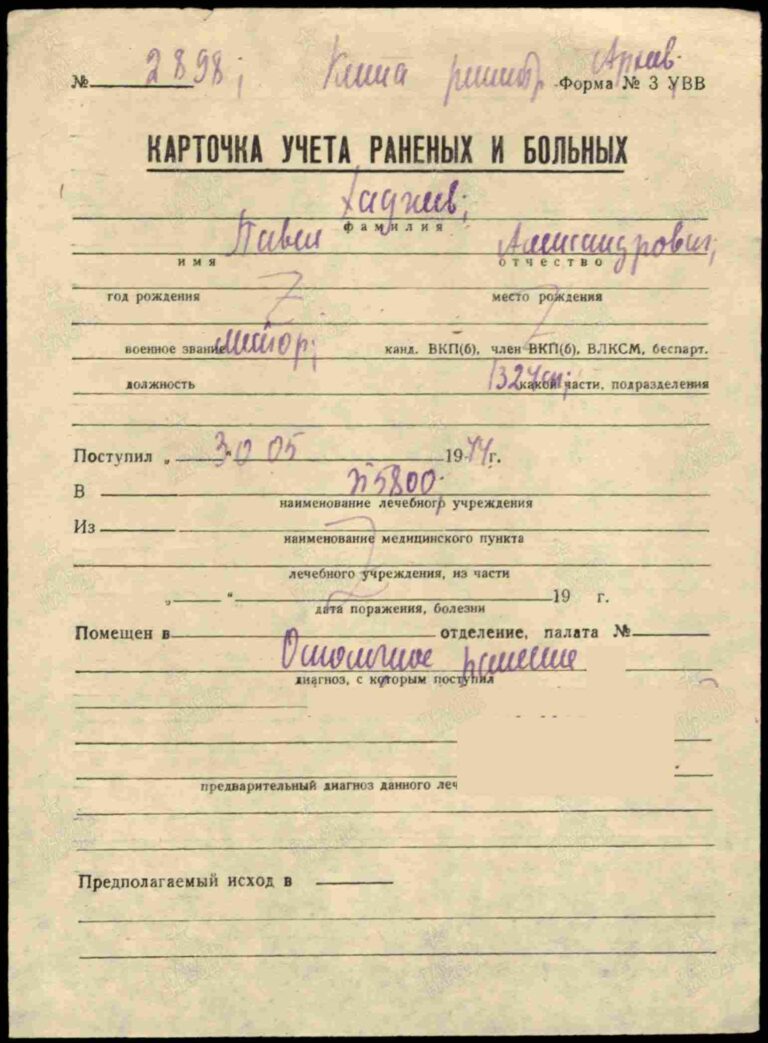 № 2898; Книга регистр Архив.
Форма № 3 УВВ
КАРТОЧКА УЧЕТА РАНЕНЫХ И БОЛЬНЫХ
фамилия
Павел Александрович;
имя отчество
год рождения место рождения
военное звание майор; канд. ВКП(б), член ВКП(б), ВЛКСМ, беспарт.
должность 1324сп; какой части, подразделения
Поступил „ 30 “ 05 1944г.
В ЭГ5800.
наименование лечебного учреждения
Из
наименование медицинского пункта
лечебного учреждения, из части
„ “ 19 г.
дата поражения, болезни
Помещен в отделение, палата №
Осколочное ранение
диагноз, с которым поступил
предварительный диагноз данного леч
Предполагаемый исход в